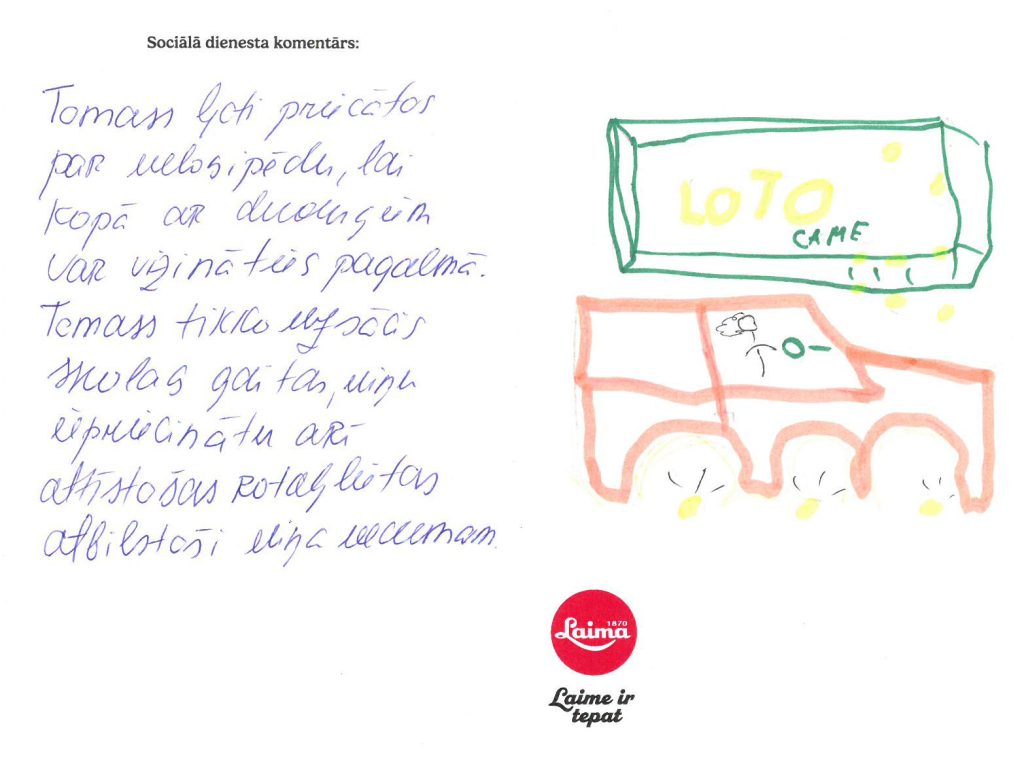 Sociālā dienesta komentārs:
Tomass ļoti priecātos
par velosipēdu, lai
kopā ar draudziņiem
var vizināties pagalmā.
Tomass tikko uzsācis
skolas gaitas, viņu
iepriecinātu arī
attīstošas rotaļlietas
atbilstoši viņa vecumam.
LOTO
CAME
1870
Laima
Laime ir
tepat